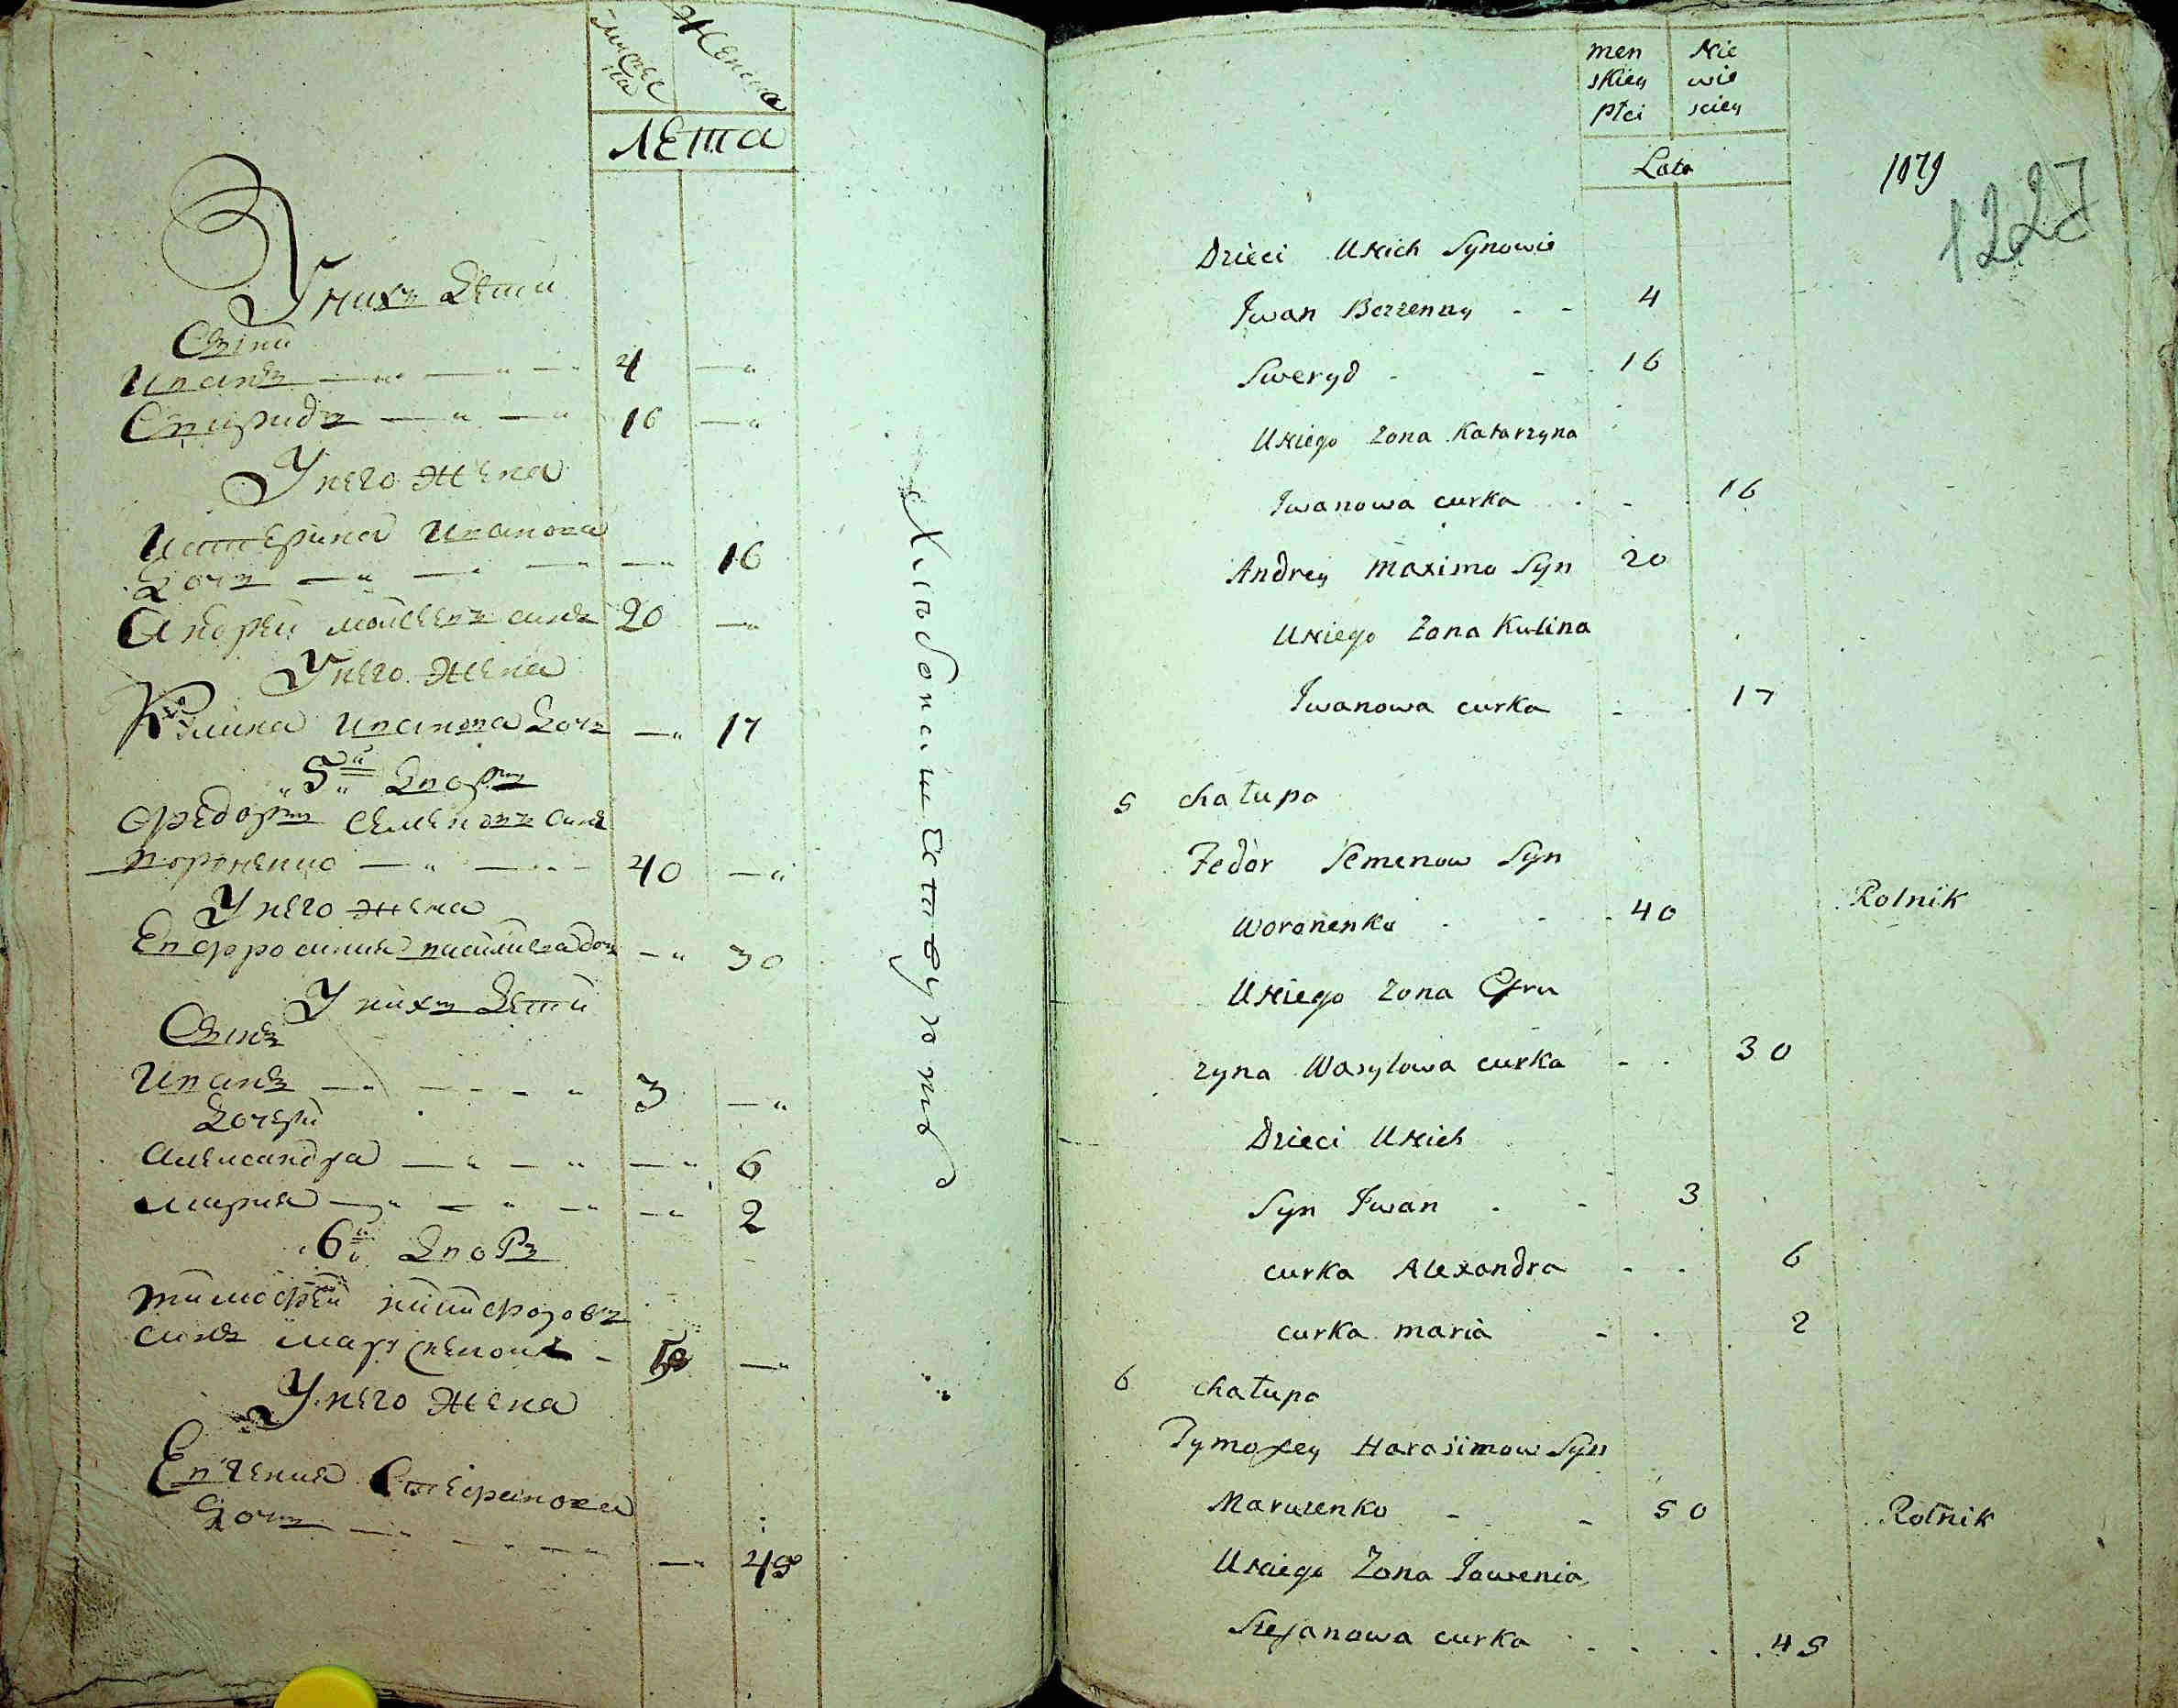 мужеска
Женска
Лета
У нихъ Дети
Сыны
Иванъ 4
Спиридъ 16
У него жена
Катерина Иванова
Дочь 16
Андрей сынъ 20
У него жена
Иванова Дочь 17
5й Дворъ
Федоръ Семеновъ сынъ
Вороненко 40
У него жена
Евфросиния дочь 30
У нихъ Дети
Сынъ
Иванъ 3
Дочери
Александра 6
Мария 2
6й Дворъ
Тимофей
сынъ 50
У него жена
Евгения Стефанова
Дочь 45
Хлебопашествуютъ
men Nie
skiey wie
płci sciey
Lata
1079
1227
Dzieci Unich Synowie
Jwan Bezzenny 4
Sweryd 16
Uniego Zona Katarzyna
Jwanowa curka 16
Andrey Maximo Syn 20
Uniego Zona Kulina
Jwanowa curka 17
5 chałupa
Fedor Semenow Syn
Woronenko 40 Rolnik
Uniego Zona Efru
zyna Wasylowa curka 30
Dzieci Unich
Syn Jwan 3
curka Alexandra 6
curka maria 2
6 chałupa
Tymofey Harasimow Syn
Maruzenko 50 Rolnik
Uniego Zona Jawenia
Stefanowa curka 45